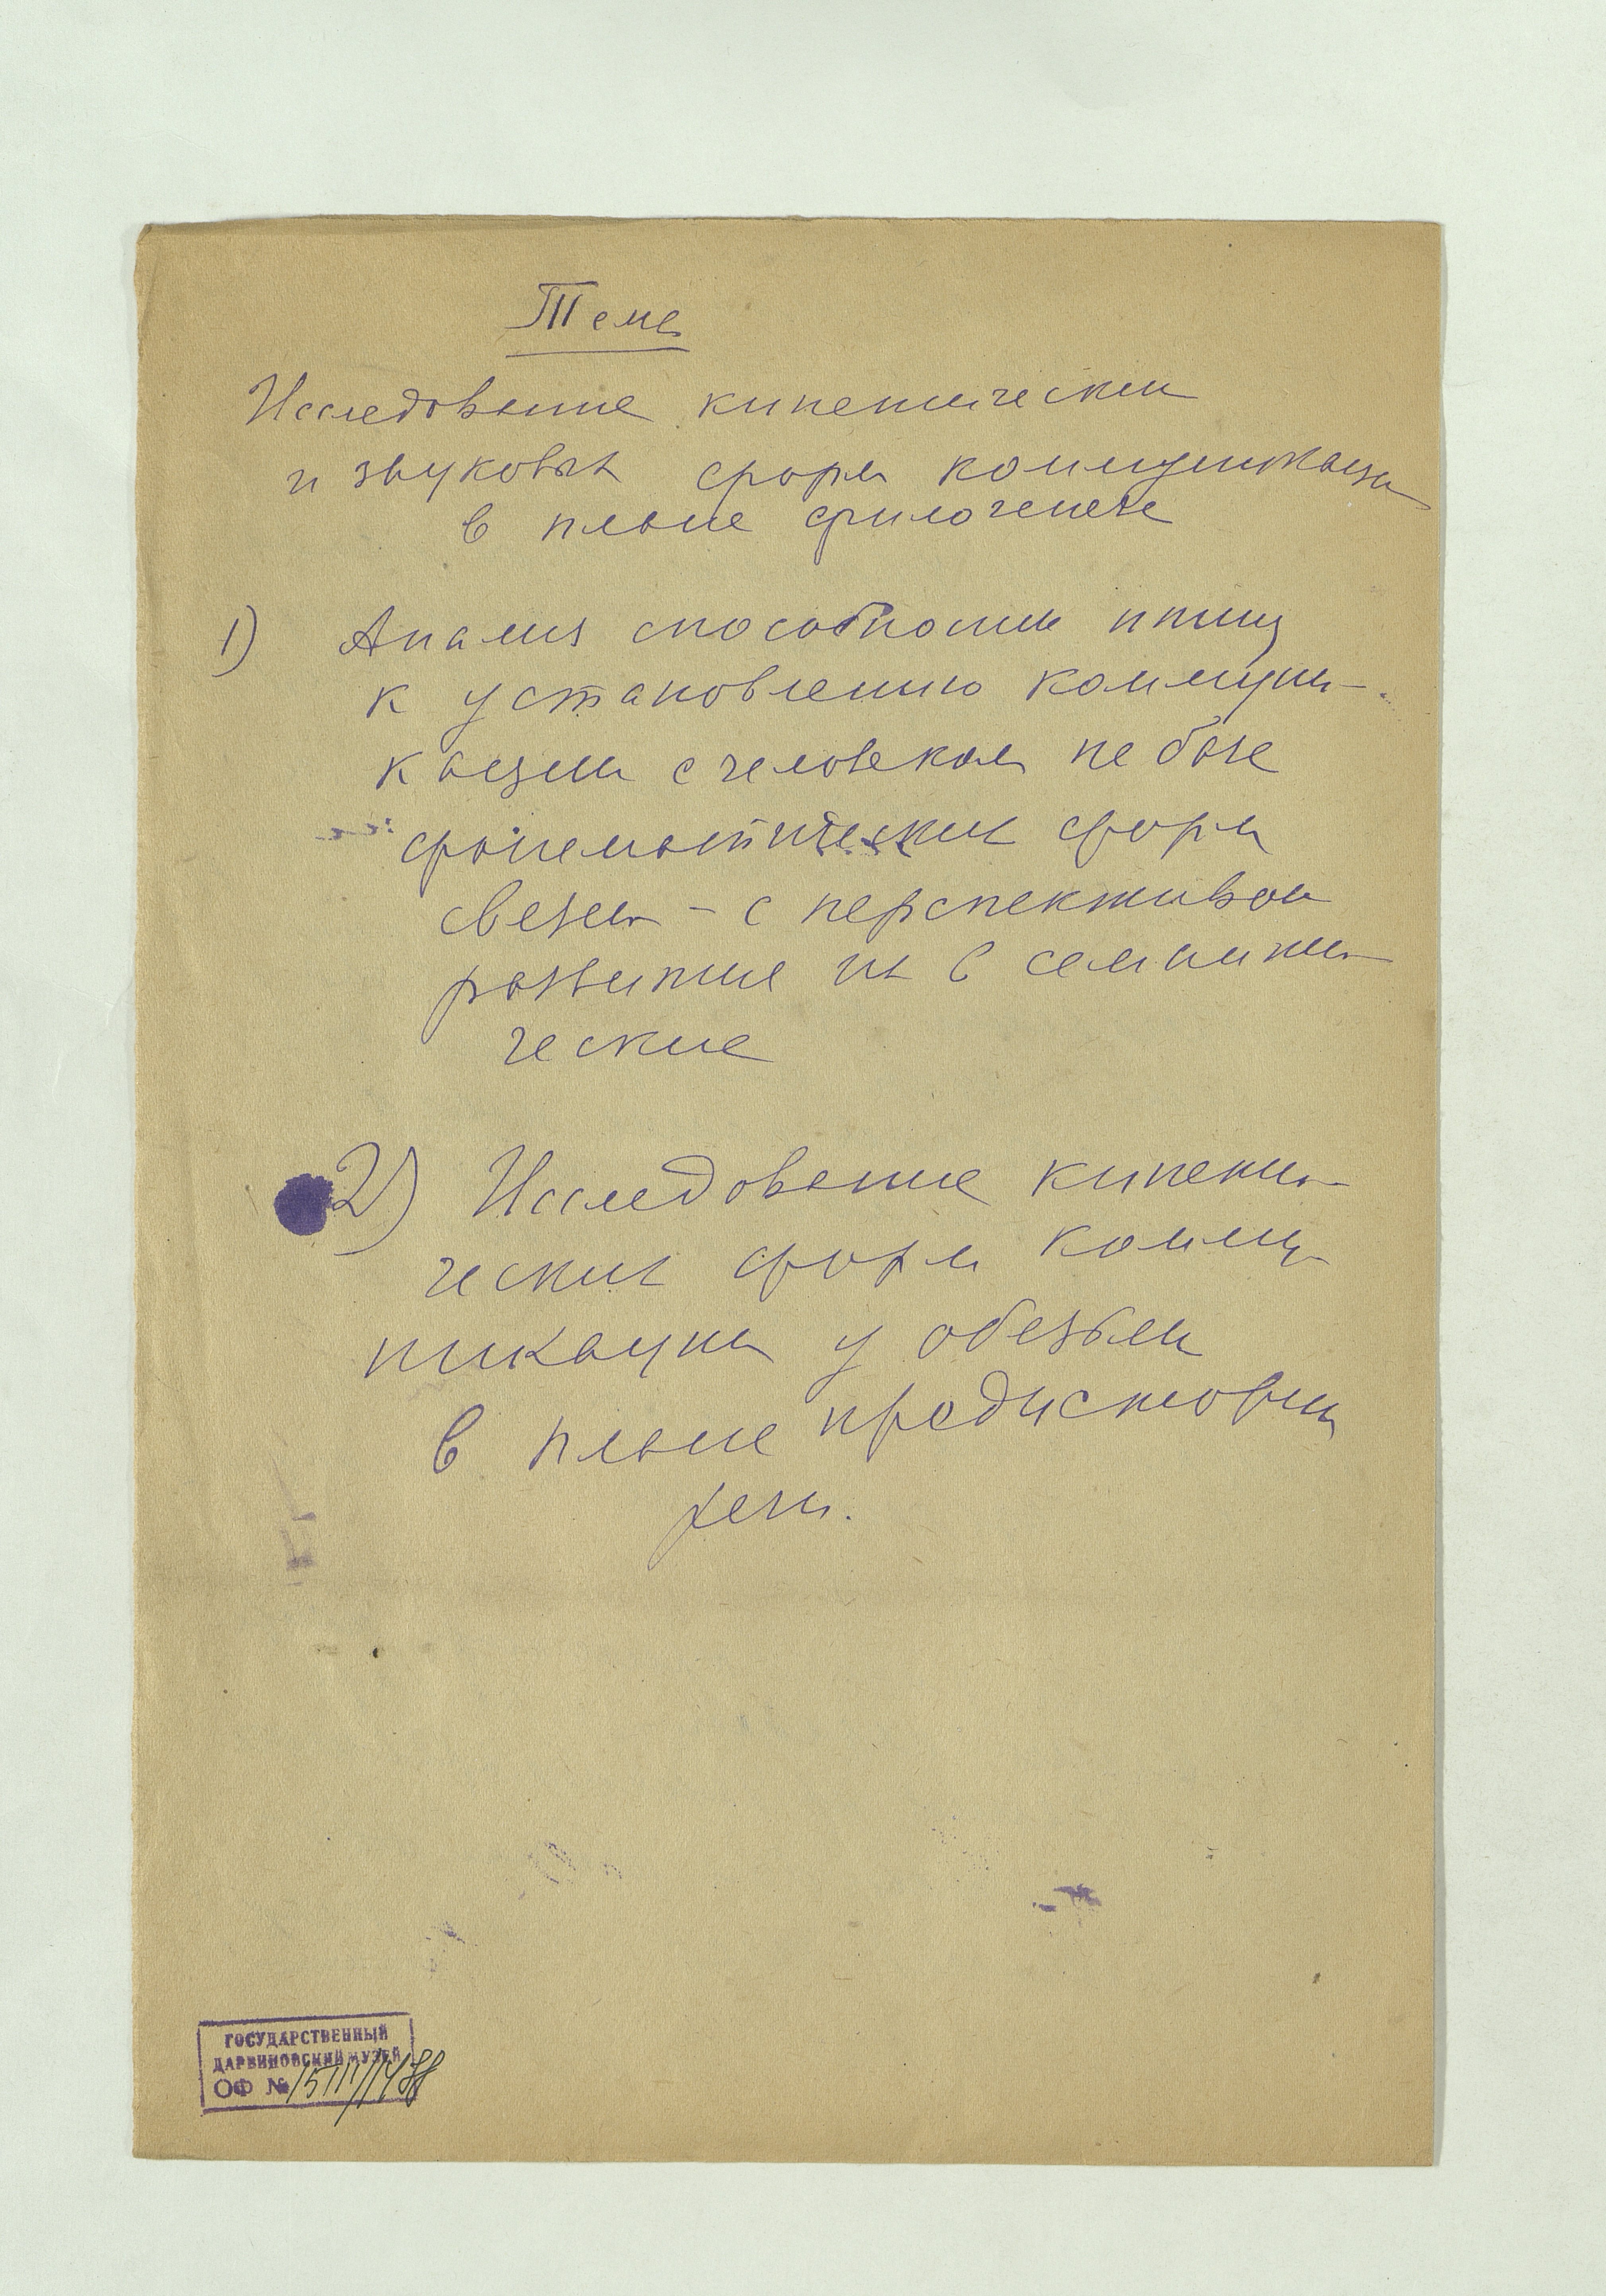 Тема
Исследование кинетических
и звуковых форм коммуникации
в плане филогенеза
1) Анализ способности птиц
к установлению коммуни-
кации с человеком на базе
фонематических форм
связи - с перспективой
развития их в семанти-
ческие
2) Исследование кинети-
ческих форм комму-
никации у обезьян
в плане предистории
речи.
ГОСУДАРСТВЕННЫЙ
ДАРВИНОВСКИЙ МУЗЕЙ
ОФ №